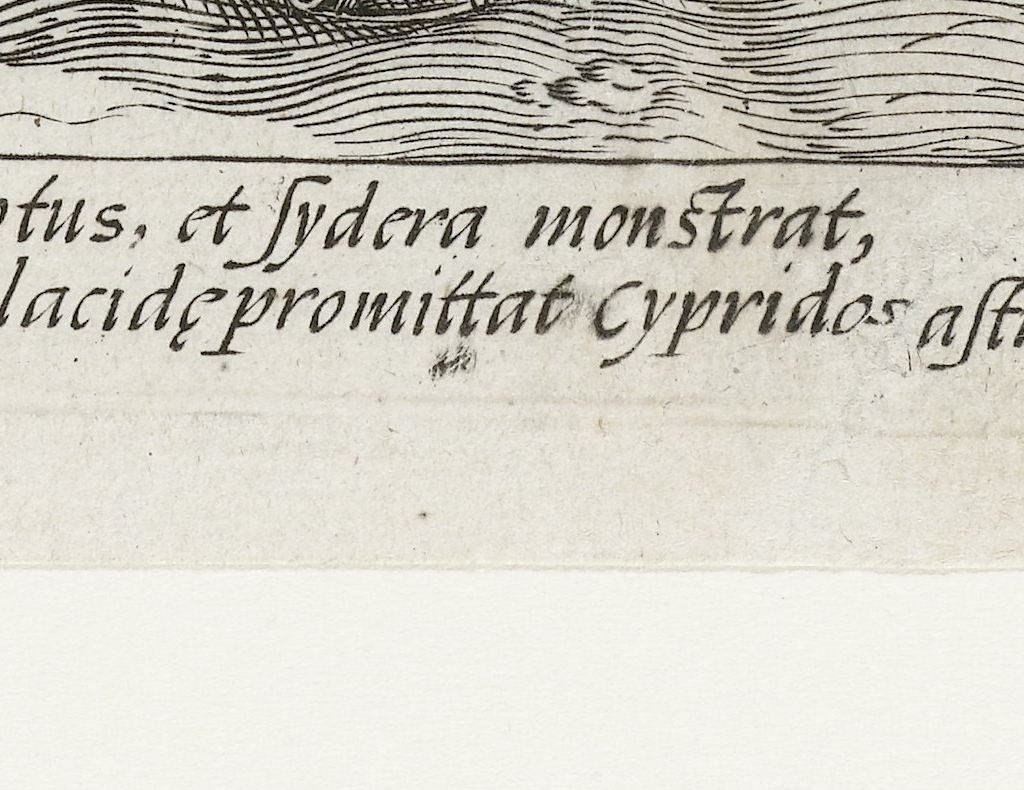 ptus, et ſydera monstrat,
lacidę promittat Cypridos aſt